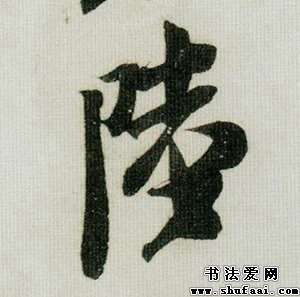 陸
书法爱网
www.shufaai.com